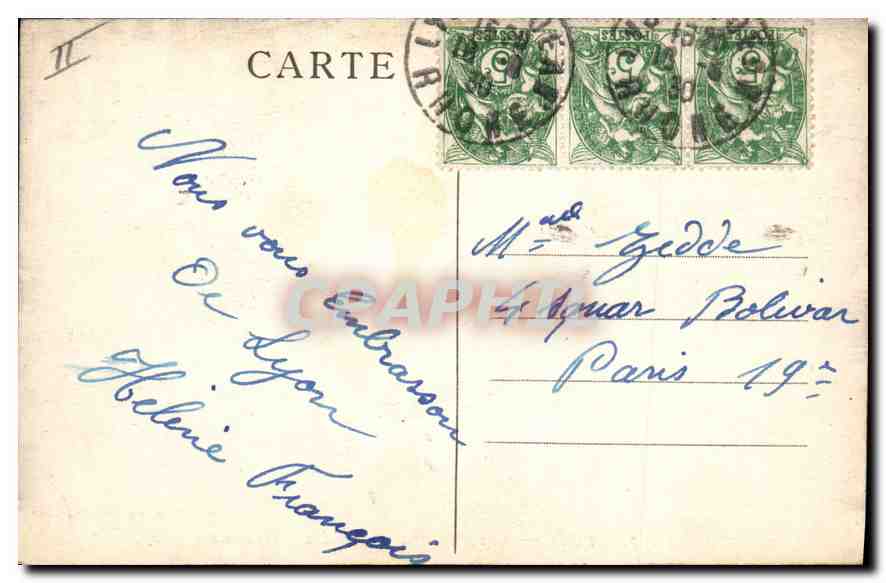 II
CARTE
POSTES
5
POSTES
5
POSTES
5
RHONE
RHONE
Nous vous Embrasson
De Lyon
Hélène François
Mme Zedde
4 squar Bolivar
Paris 19e
CPAPHIL